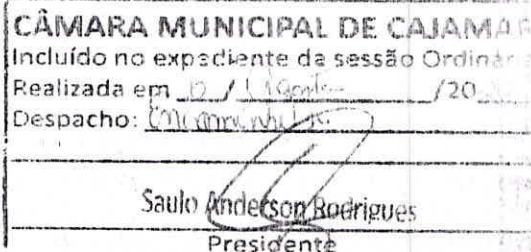 CÂMARA MUNICIPAL DE CAJAMAR
Incluído no expediente da sessão Ordinár
Realizada em 12 / Agosto /20
Despacho:
Saulo Anderson Rodrigues
Presidente